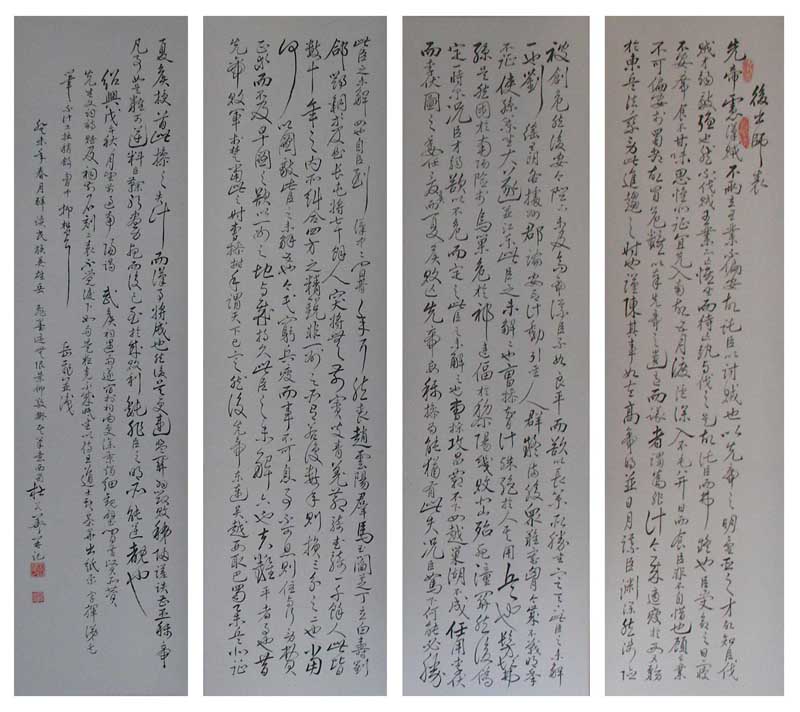 後出師表
先帝慮漢賊不兩立王業不偏安故託臣以討賊也以先帝之明量臣之才故知臣伐
賊才弱敵強也然不伐賊王業亦亡惟坐而待亡孰與伐之是故託臣而弗疑也臣受命之日寢
不安席食不甘味思惟北征宜先入南故五月渡瀘深入不毛并日而食臣非不自惜也顧王業
不可偏安於蜀都故冒危難以奉先帝之遺意而議者謂為非計今賊適疲於西又務
於東兵法乘勞此進趨之時也謹陳其事如左高帝明並日月謀臣淵深然涉險
被創危然後安今陛下未及高帝謀臣不如良平而欲以長策取勝坐定天下此臣之未解
一也劉繇王朗各據州郡論安言計動引聖人群疑滿腹眾難塞胸今歲不戰明年
不征使孫策坐大遂並江東此臣之未解二也曹操智計殊絕於人其用兵也髣髴
孫吳然困於南陽險於烏巢危於祁連偪於黎陽幾敗北山殆死潼關然後偽
定一時耳況臣才弱欲以不危而定之此臣之未解三也曹操五攻昌霸不下四越巢湖不成任用李服
而李服圖之委任夏侯而夏侯敗亡先帝每稱操為能猶有此失況臣駑下何能必勝
此臣之未解四也自臣到漢中中間朞年耳然喪趙雲陽群馬玉閻芝丁立白壽劉
郃鄧銅等及曲長屯將七十餘人突將無前賨叟青羌散騎武騎一千餘人此皆
數十年之內所糾合四方之精銳非一州之所有若復數年則損三分之二也當
何以圖敵此臣之未解五也今民窮兵疲而事不可息事不可息則住與行勞費
正等而不及早圖之欲以一州之地與賊持久此臣之未解六也夫難平者事也昔
先帝敗軍於楚當此之時曹操拊手謂天下已定然後先帝東連吳越西取巴蜀舉兵北征
夏侯授首此操之失計而漢事將成也然後吳更違盟關羽毀敗秭歸蹉跌曹丕稱帝
凡事如是難可逆料臣鞠躬盡力死而後已至於成敗利鈍非臣之明所能逆覩也
紹興戊午秋八月望前過南陽謁武侯祠遇雨遂宿於祠內更深秉燭細觀壁間昔賢所贊
先生文詞詩賦及祠前石刻二表不覺淚下如雨是夜竟不成眠坐以待旦道士獻茶畢出紙索字揮涕走
筆不計工拙稍舒胸中抑鬱耳 岳飛並識
癸未年春月